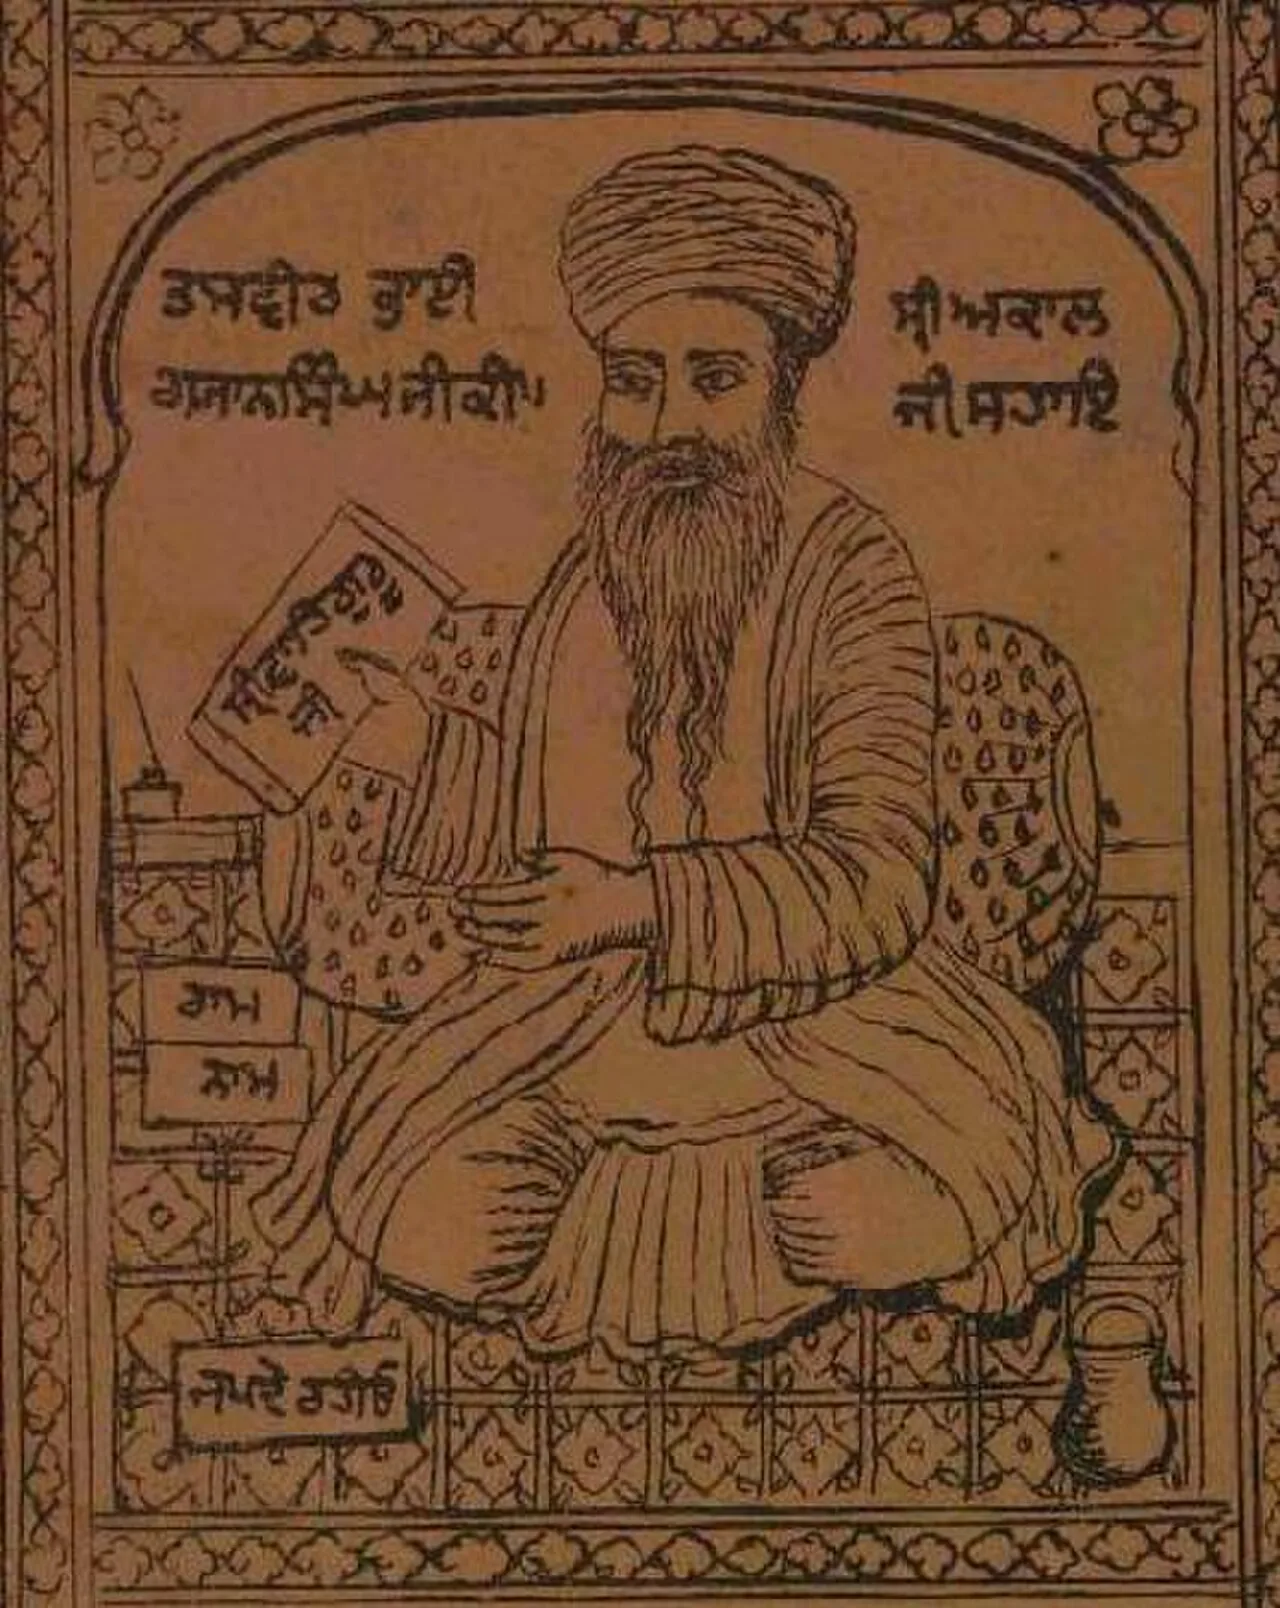 ਤਸਵੀਰ ਭਾਈ
ਗਯਾਨ ਸਿੰਘ ਜੀ ਕੀ॥
ਸ੍ਰੀ ਅਕਾਲ
ਜੀ ਸਹਾਇ
ਰਾਮ
ਨਾਮ
ਜਪਦੇ ਰਹੀਏ